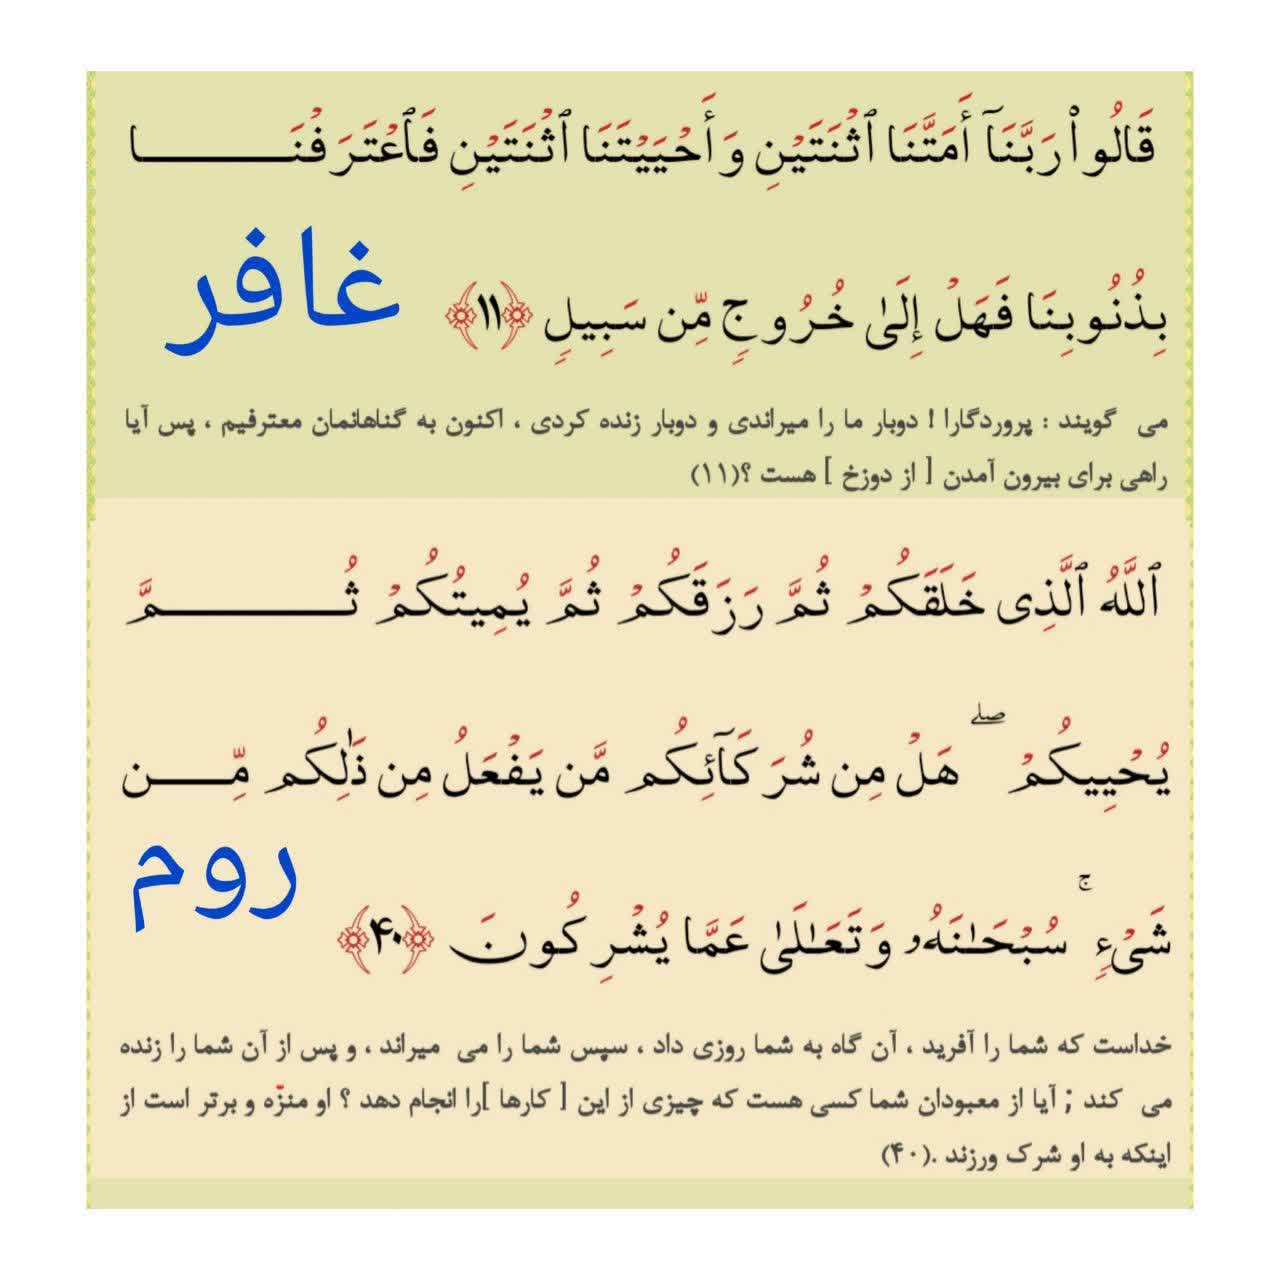 قَالُوا۟ رَبَّنَآ أَمَتَّنَا ٱثْنَتَيْنِ وَأَحْيَيْتَنَا ٱثْنَتَيْنِ فَٱعْتَرَفْنَـــــا
بِذُنُوبِنَا فَهَلْ إِلَىٰ خُرُوجٍ مِّن سَبِيلٍ ﴿۱۱﴾
غافر
می گویند : پروردگارا ! دوبار ما را میراندی و دوبار زنده کردی ، اکنون به گناهانمان معترفیم ، پس آیا
راهی برای بیرون آمدن [ از دوزخ ] هست ؟(۱۱)
ٱللَّهُ ٱلَّذِى خَلَقَكُمْ ثُمَّ رَزَقَكُمْ ثُمَّ يُمِيتُكُمْ ثُـــــمَّ
يُحْيِيكُمْ ۖ هَلْ مِن شُرَكَآئِكُم مَّن يَفْعَلُ مِن ذَٰلِكُم مِّـــن
روم
شَىْءٍ ۚ سُبْحَـٰنَهُۥ وَتَعَـٰلَىٰ عَمَّا يُشْرِكُونَ ﴿۴۰﴾
خداست که شما را آفرید ، آن گاه به شما روزی داد ، سپس شما را می میراند ، و پس از آن شما را زنده
می کند ; آیا از معبودان شما کسی هست که چیزی از این [ کارها ]را انجام دهد ؟ او منزّه و برتر است از
اینکه به او شرک ورزند .(۴۰)